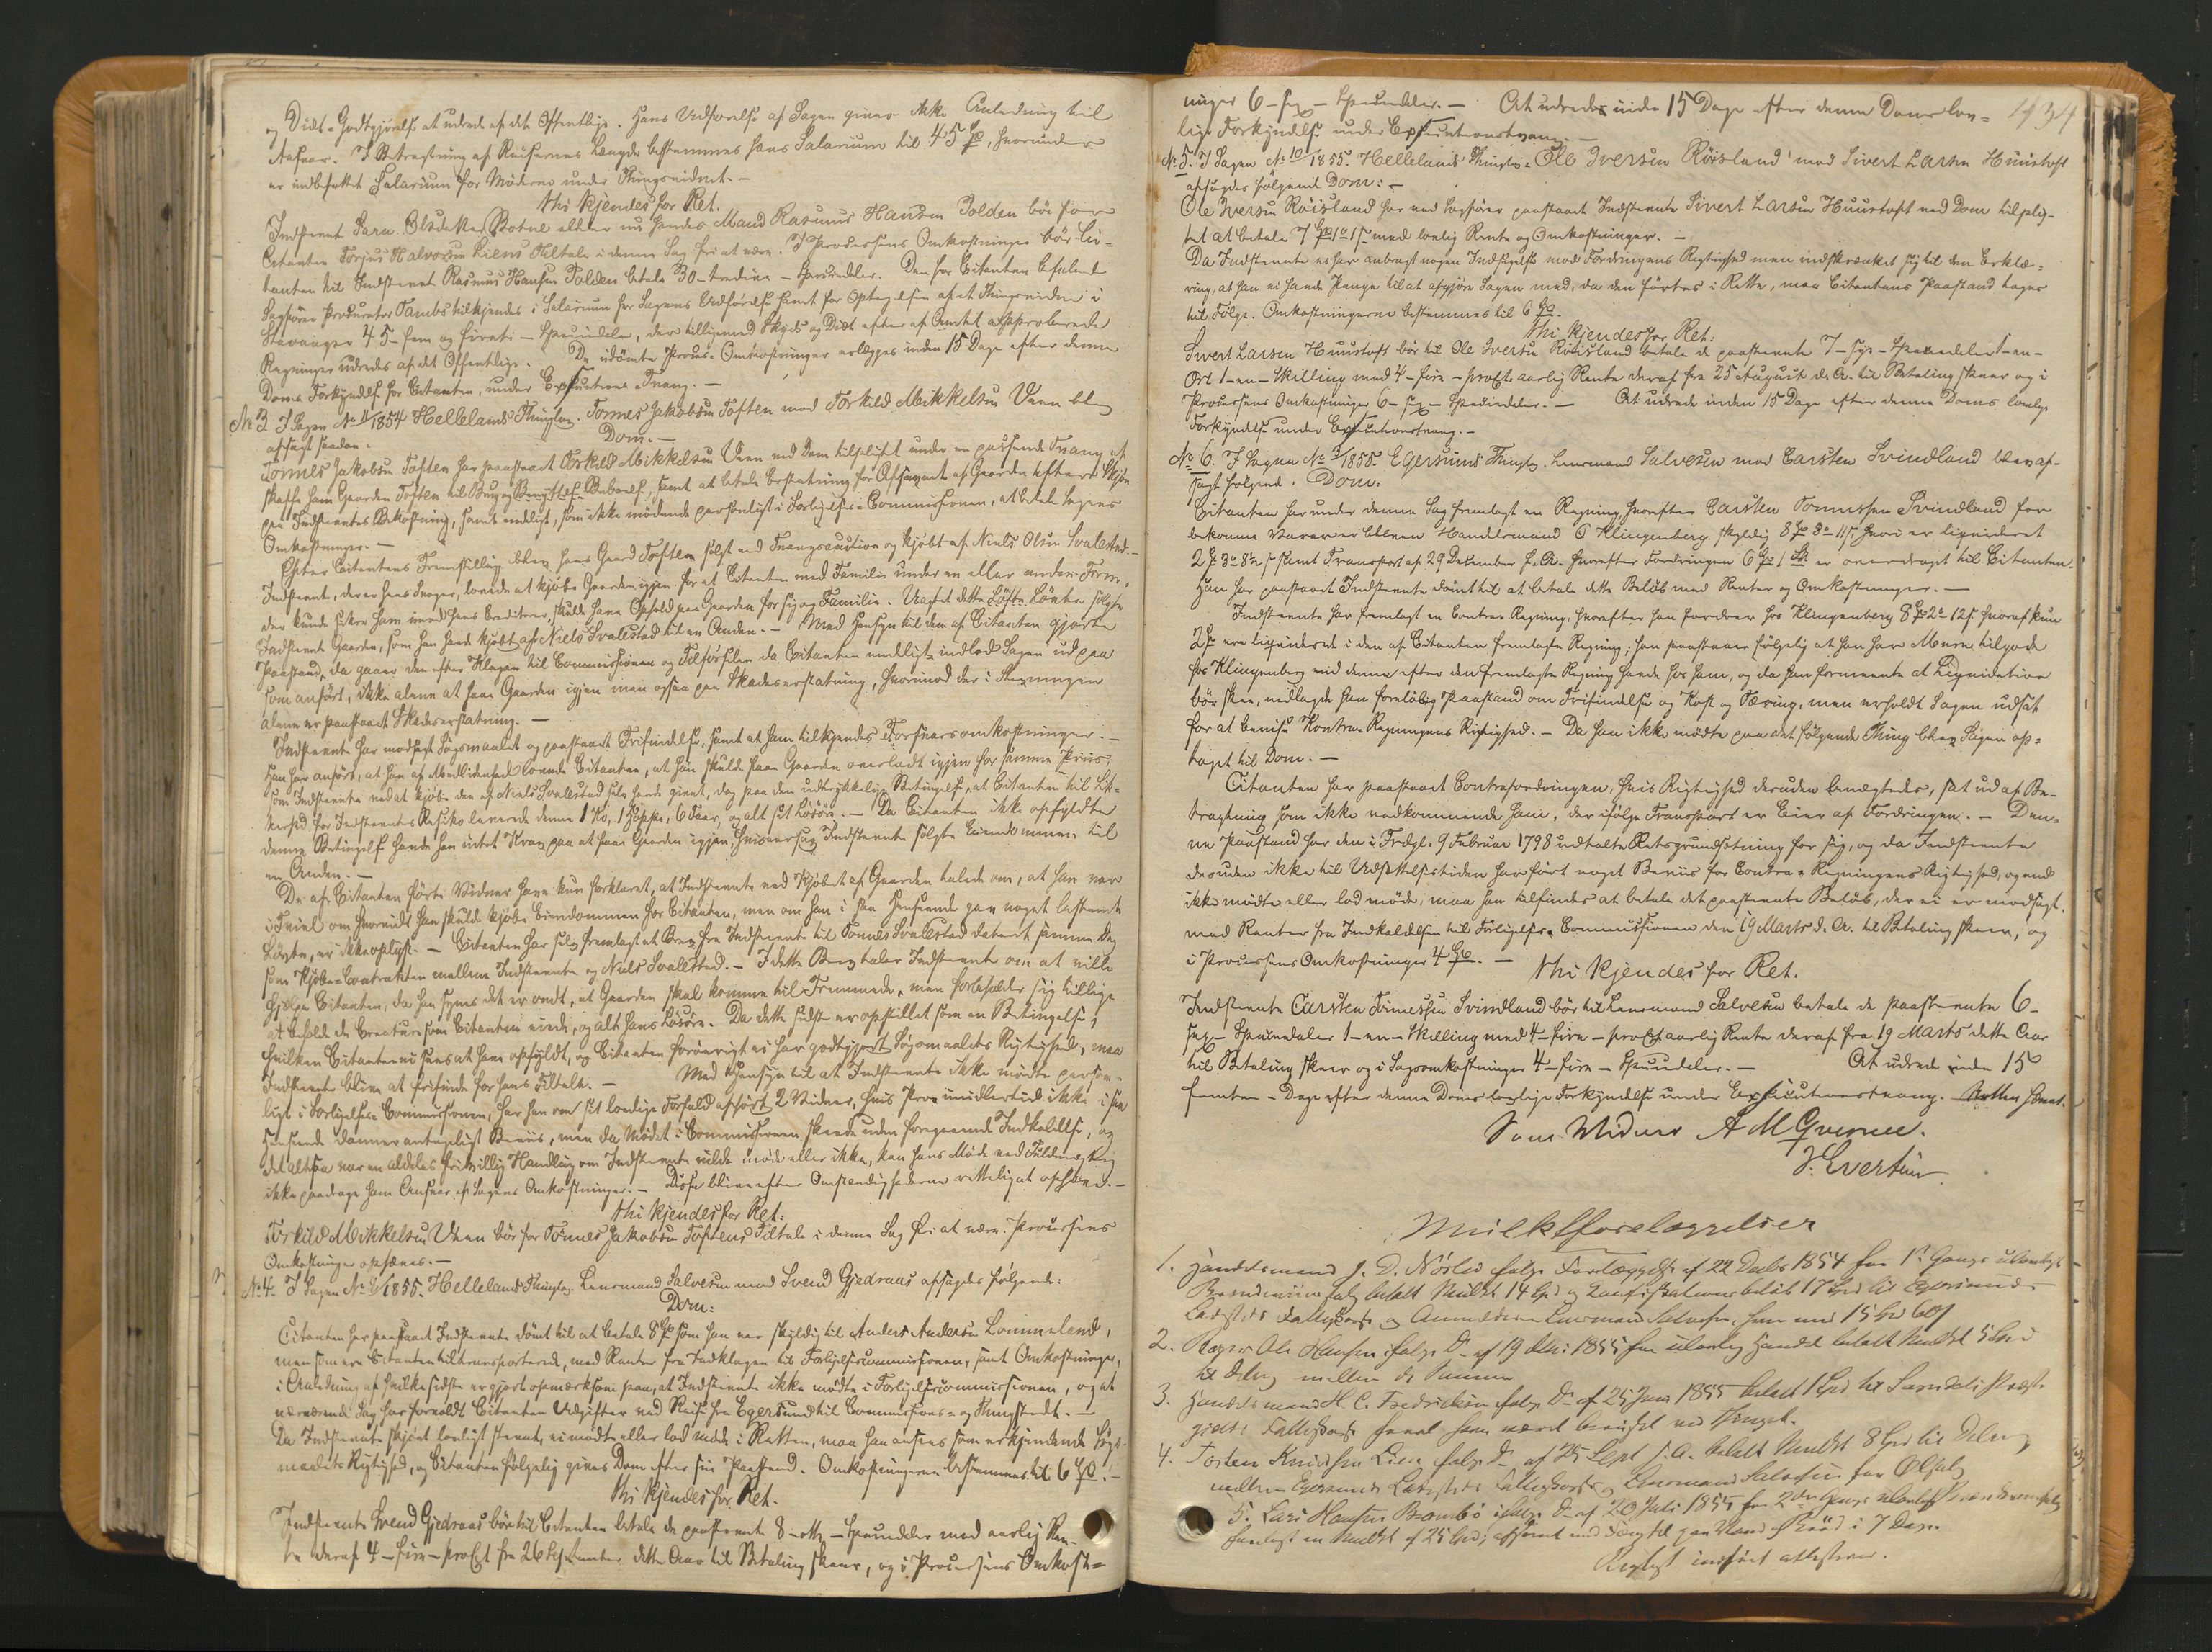 og Diæt-Godtgjørelse at udrede af det Offentlige. Hans Udførelse af Sagen giver ikke Anledning til
Ansvar. I Betragtning af Reisernes Længde bestemmes hans Salarium til 45 Spd, hvorunder
er indbefattet Salarium for Møderne under Thingsvidnet. —
Thi kjendes for Ret.
Indstevnte Sara Olsdatter Botne eller nu hendes Mand Rasmus Hansen Tolden bør for
Citanten Torjus Halvorsen Liens Tiltale i denne Sag fri at være. I Processens Omkostninger bør Ci-
tanten til Indstevnte Rasmus Hansen Tolden betale 30 - tredive - Speciedaler. Den for Citanten befalede
Sagfører Procurator Tambs tilkjendes i Salarium for Sagens Udførelse samt for Optagelsen af et Thingsvidne i
Stavanger 45 - fem og firti - Speciedaler, der tilligemed Skyds og Diæt efter af Amtet approberede
Regninger udredes af det Offentlige. De idømte Proces-Omkostninger erlægges inden 15 Dage efter denne
Doms Forkyndelse for Citanten, under Executions-Tvang. —
No 3. I Sagen No 1854 Hellelands Thinglag. Tønnes Jakobsen Toften mod Torkild Mikkelsen Veen blev
afsagt saadan:
Dom. —
Tønnes Jakobsen Toften har paastaaet Torkild Mikkelsen Veen ved Dom tilpligtet under en passende Tvang at
skaffe ham Gaarden Toften til Brug og Benyttelse samt at betale Erstatning for Afsavnet af Gaarden efter Skjøn
paa Indstevntes Bekostning, samt endeligt, som ikke mødende personligt i Forligelses-Commissionen, at betale Sagens
Omkostninger. —
Efter Citantens Fremstilling blev hans Gaard Toften solgt ved Tvangsauction og kjøbt af Niels Olsen Svalestad. —
Indstevnte, der er hans Svoger, lovede at kjøbe Gaarden igjen for at Citanten med Familie under en eller anden Form,
der kunde sikre ham imod hans Creditorer, skulde have Ophold paa Gaarden for sig og Familie. Uagtet dette Løfte solgte
Indstevnte Gaarden, som han havde kjøbt af Niels Svalestad til en Anden. — Med Hensyn til den af Citanten gjorte
Paastand, da gaaer den efter Klagen til Commissionen og Tilførselen da Citanten endeligt indlod Sagen ud paa
som anført, ikke alene at faae Gaarden igjen men ogsaa paa Skadeserstatning, hvorimod der i Stevningen
alene er paastaaet Skadeserstatning. —
Indstevnte har modsagt Søgsmaalet og paastaaet Frifindelse, samt at ham tilkjendes Forsvarsomkostninger. —
Han har anført, at han af Medlidenhed lovede Citanten, at han skulde faae Gaarden overladt igjen for samme Priis,
som Indstevnte ved at kjøbe den af Niels Svalestad selv havde givet, dog paa den udtrykkelige Betingelse, at Citanten til Sik-
kerhed for Indstevntes Resiko leverede denne 1 Ko, 1 Hoppe, 6 Faar, og alt sit Løsøre. — Da Citanten ikke opfyldte
denne Betingelse havde han intet Krav paa at faae Gaarden igjen, hvisaarsag Indstevnte solgte Eiendommen til
en Anden. —
De af Citanten førte Vidner have kun forklaret, at Indstevnte ved Kjøbet af Gaarden talede om, at han var
i Tvivl om hvorvidt han skulde kjøbe Eiendommen for Citanten, men om han i saa Henseende gav noget bestemt
Løfte, er ikke oplyst. — Citanten har selv fremlagt et Brev fra Indstevnte til Tønnes Svalestad dateret samme Dag
som Kjøbe-Contrakten mellem Indstevnte og Niels Svalestad. — I dette Brev taler Indstevnte om at ville
hjelpe Citanten, da han synes det er ondt, at Gaarden skal komme til Fremmede, men forbeholder sig tillige
at beholde de Creature som Citanten eiede, og alt hans Løsøre. Da dette sidste er opstillet som en Betingelse,
hvilken Citanten ei sees at have opfyldt, og Citanten forøvrigt ei har godtgjort Søgsmaalets Rigtighed, maa
Indstevnte blive at frifinde for hans Tiltale. — Med Hensyn til at Indstevnte ikke mødte person-
ligt i Forligelses-Commissionen, har han om sit lovlige Forfald afhørt 2 Vidner, hvis Prov imidlertid ikke i saa
Henseende danner antageligt Beviis, men da Mødet i Commissionen skeede uden foregaaende Indkaldelse, og
det altsaa var en aldeles frivillig Handling om Indstevnte vilde møde eller ikke, kan hans Møde ved Fuldmægtig
ikke paadrage ham Ansvar af Sagens Omkostninger. — Disse blive efter Omstændighederne retteligst at ophæve. —
Thi kjendes for Ret:
Torkild Mikkelsen Veen bør for Tønnes Jakobsen Toftens Tiltale i denne Sag fri at være. Processens
Omkostninger ophæves. —
No 4. I Sagen No 1855. Hellelands Thinglag. Lensmand Salvesen mod Svend Gjedraas afsagdes følgende:
Dom:
Citanten har paastaaet Indstevnte dømt til at betale 8 Spd som han var skyldig til Anders Andersen Lommeland,
men som ere Citanten tiltransporterede, med Renter fra Indklagen til Forligelsescommissionen, samt Omkostninger,
i Anledning af hvilke sidste er gjort opmærksom paa, at Indstevnte ikke mødte i Forligelsescommissionen, og at
nærværende Sag har forvoldt Citanten Udgifter ved Reise fra Egersund til Commissions- og Thingstedet. —
Da Indstevnte skjønt lovligt stevnt, ei mødte eller lod møde i Retten, maa han ansees som erkjendende Søgs-
maalets Rigtighed, og Citanten følgelig gives Dom efter sin Paastand. Omkostningerne bestemmes til 6 Spd. —
Thi kjendes for Ret.
Indstevnte Svend Gjedraas bør til Citanten betale de paastevnte 8 - otte - Speciedaler med aarlig Ren-
te deraf 4 - fire - proCt fra 26 September dette Aar til Betaling skeer, og i Processens Omkost-
ninger 6 - sex - Speciedaler. — At udredes inden 15 Dage efter denne Doms lov-
lige Forkyndelse under Executionstvang. —
1434
No 5. I Sagen No 10/1855. Hellelands Thinglag. Ole Iversen Röisland mod Sivert Larsen Huustoft
afsagdes følgende Dom: —
Ole Iversen Röisland har ved Sagfører paastaaet Indstevnte Sivert Larsen Huustoft ved Dom tilplig-
tet at betale 7 Spd 1 Ort 1 s med lovlig Rente og Omkostninger. —
Da Indstevnte ei har anbragt nogen Indsigelse mod Fordringens Rigtighed men indskrænket sig til den Erklæ-
ring, at han ei havde Penge til at afgjøre Sagen med, da den førtes i Rette, maa Citantens Paastand tages
til Følge. Omkostningerne bestemmes til 6 Spd.
Thi kjendes for Ret:
Sivert Larsen Huustoft bør til Ole Iversen Röisland betale de paastevnte 7 - syv - Speciedaler 1 - en -
Ort 1 - en - Skilling med 4 - fire - proCt. aarlig Rente deraf fra 25 August d. A. til Betaling skeer og i
Processens Omkostninger 6 - sex - Speciedaler. — At udrede inden 15 Dage efter denne Doms lovlige
Forkyndelse under Executionstvang. —
No 6. I Sagen No 3/1855. Egersunds Thinglag. Lensmand Salvesen mod Carsten Svindland blev af-
sagt følgende. Dom:
Citanten har under denne Sag fremlagt en Regning, hvorefter Carsten Tønnessen Svindland for
bekomne Varer er bleven Handelsmand O Klingenberg skyldig 8 Spd 3 Ort 11 s hvori er ligvideret
samt Transport af 29 December f. A. hvorefter Fordringen 6 Spd 1 s er overdraget til Citanten.
Han har paastaaet Indstevnte dømt til at betale dette Beløb med Renter og Omkostninger. —
Indstevnte har fremlagt en Contra-Regning, hvorefter han fordrer hos Klingenberg 8 Spd 2 Ort 12 s hvoraf kun
2 Spd ere ligviderede i den af Citanten fremlagte Regning; han paastaaer følgelig at han have Mere tilgode
hos Klingenberg end denne efter den fremlagte Regning havde hos ham, og da han formeente at Liqvidation
bør skee, nedlagde han foreløbig Paastand om Frifindelse og Kost og Tæring, men erholdt Sagen udsat
for at bevise Kontra-Regningens Rigtighed. — Da han ikke mødte paa det følgende Thing blev Sagen op-
taget til Dom. —
Citanten har paastaaet Contrafordringen, hvis Rigtighed desuden benægtedes, sat ud af Be-
tragtning som ikke vedkommende ham, der ifølge Transport er Eier af Fordringen. — Den-
ne Paastand har den i Frdgn. 9 Februar 1798 udtalte Retsgrundsætning for sig, og da Indstevnte
desuden ikke til Udsættelsestiden har ført noget Beviis for Contra-Regningens Rigtighed, og end
ikke mødte eller lod møde, maa han tilfindes at betale det paastevnte Beløb, der ei er modsagt.
med Renter fra Indkaldelsen til Forligelses-Commissionen den 19 Marts d. A. til Betaling skeer, og
i Processens Omkostninger 4 Spd. — Thi kjendes for Ret.
Indstevnte Carsten Tønnessen Svindland bør til Lensmand Salvesen betale de paastevnte 6 -
sex - Speciedaler 1 - en - Skilling med 4 - fire - proCt aarlig Rente deraf fra 19 Marts dette Aar
til Betaling skeer og i Sagsomkostninger 4 - fire - Speciedaler. — At udrede inden 15
femten - Dage efter denne Doms lovlige Forkyndelse under Executionstvang. Retten hævet.
Som Vidner A M Qvenne.
J. Evertsen
Mulktforelæggelser
1. Handelsmand J. D. Nørled ifølge Forelæggelse af 22 Decbr 1854 for 1ste Gangs ulovligt
Brændeviinsalg betalt Mulkt 14 Spd og Konfiskationsbeløb 17 Spd til Egersunds
Ladsteds Fattigkasse og Anmelderen Lensmand Salvesen, hver med 15 Spd 60 s
2. Ole Hansen ifølge Do af 19 1855 for ulovlig Handel betalt Mulkt 5 Spd
til Deling mellem de Samme
3. Handelsmand H. C. Fredriksen ifølge Do af 25 Juni 1855 betalt 1 Spd til
gjelds Fattigkasse havde været beruset ved Thinget.
4. Torsten Knudsen Lien ifølge Do af 25 Sept f. A. betalt Mulkt 8 Spd til Deling
mellem Egersunds Ladsteds Fattigkasse og Lensmand Salvesen for Ølsalg
5. Lars Hansen Brombo ifølge Do af 20 Juli 1855 for 2den Gangs ulovligt Brændeviinsalg
forelagt en Mulkt af 25 Spd, afsonet med Fængsel paa Vand og Brød i 7 Dage.
Rigtigt indført attesteres.